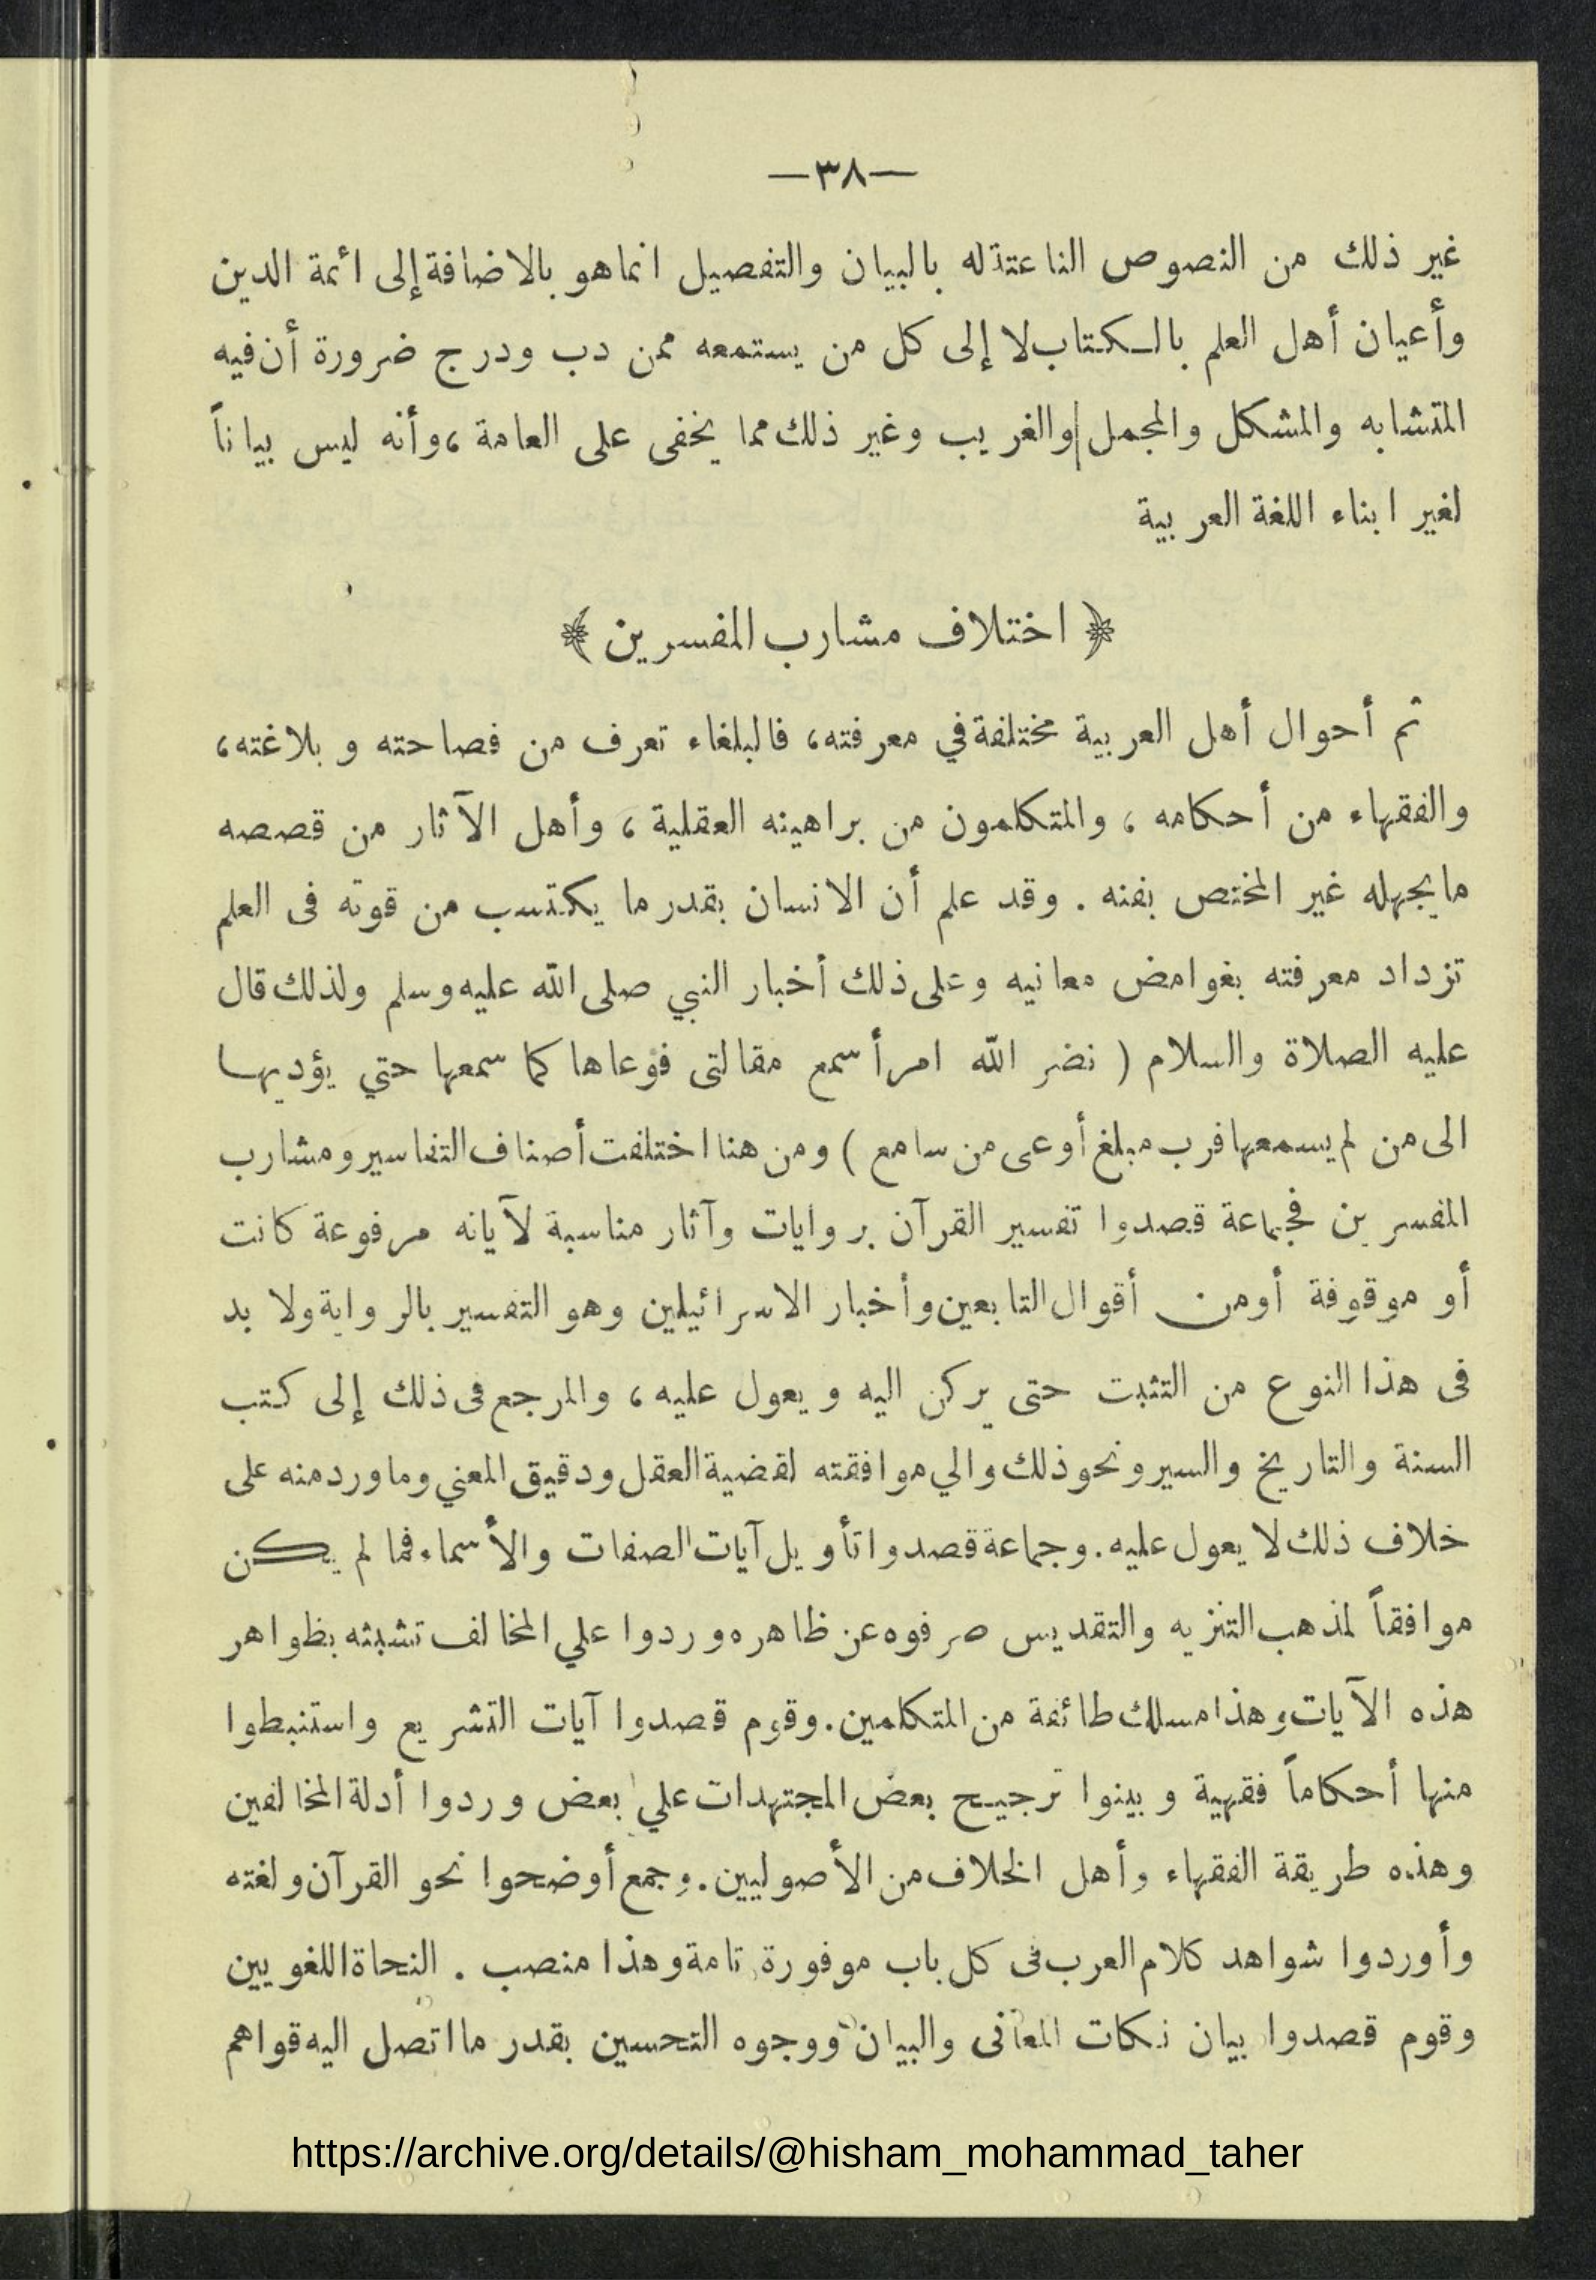 —٣٨—
غير ذلك من النصوص الناعتة له بالبيان والتفصيل انما هو بالاضافة إلى ائمة الدين
وأعيان أهل العلم بالكتاب لا إلى كل من يستمعه ممن دب ودرج ضرورة أن فيه
المتشابه والمشكل والمجمل والغريب وغير ذلك مما يخفى على العامة ، وأنه ليس بياناً
لغير ابناء اللغة العربية
﴿ اختلاف مشارب المفسرين ﴾
ثم أحوال أهل العربية مختلفة في معرفته ، فالبلغاء تعرف من فصاحته و بلاغته ،
والفقهاء من أحكامه ، والمتكلمون من براهينه العقلية ، وأهل الآثار من قصصه
ما يجهله غير المختص بفنه . وقد علم أن الانسان بقدر ما يكتسب من قوته فى العلم
تزداد معرفته بغوامض معانيه وعلى ذلك أخبار النبي صلى الله عليه وسلم ولذلك قال
عليه الصلاة والسلام ( نضر الله امرأ سمع مقالتى فوعاها كما سمعها حتي يؤديها
الى من لم يسمعها فرب مبلغ أوعى من سامع ) ومن هنا اختلفت أصناف التفاسير ومشارب
المفسرين فجماعة قصدوا تفسير القرآن بروايات وآثار مناسبة لآياته مرفوعة كانت
أو موقوفة أو من أقوال التابعين وأخبار الاسرائيليين وهو التفسير بالرواية ولا بد
فى هذا النوع من التثبت حتى يركن اليه و يعول عليه ، والمرجع فى ذلك إلى كتب
السنة والتاريخ والسير ونحو ذلك والي موافقته لقضية العقل ودقيق المعني وما ورد منه على
خلاف ذلك لا يعول عليه . وجماعة قصدوا تأويل آيات الصفات والأسماء فما لم يكن
موافقاً لمذهب التنزيه والتقديس صرفوه عن ظاهره وردوا علي المخالف تشبثه بظواهر
هذه الآيات وهذا مسلك طائفة من المتكلمين . وقوم قصدوا آيات التشريع واستنبطوا
منها أحكاماً فقهية و بينوا ترجيح بعض المجتهدات علي بعض وردوا أدلة المخالفين
وهذه طريقة الفقهاء وأهل الخلاف من الأصوليين . وجمع أوضحوا نحو القرآن ولغته
وأوردوا شواهد كلام العرب فى كل باب موفورة تامة وهذا منصب . النحاة اللغويين
وقوم قصدوا بيان نكات المعانى والبيان ووجوه التحسين بقدر ما اتصل اليه قواهم
https://archive.org/details/@hisham_mohammad_taher